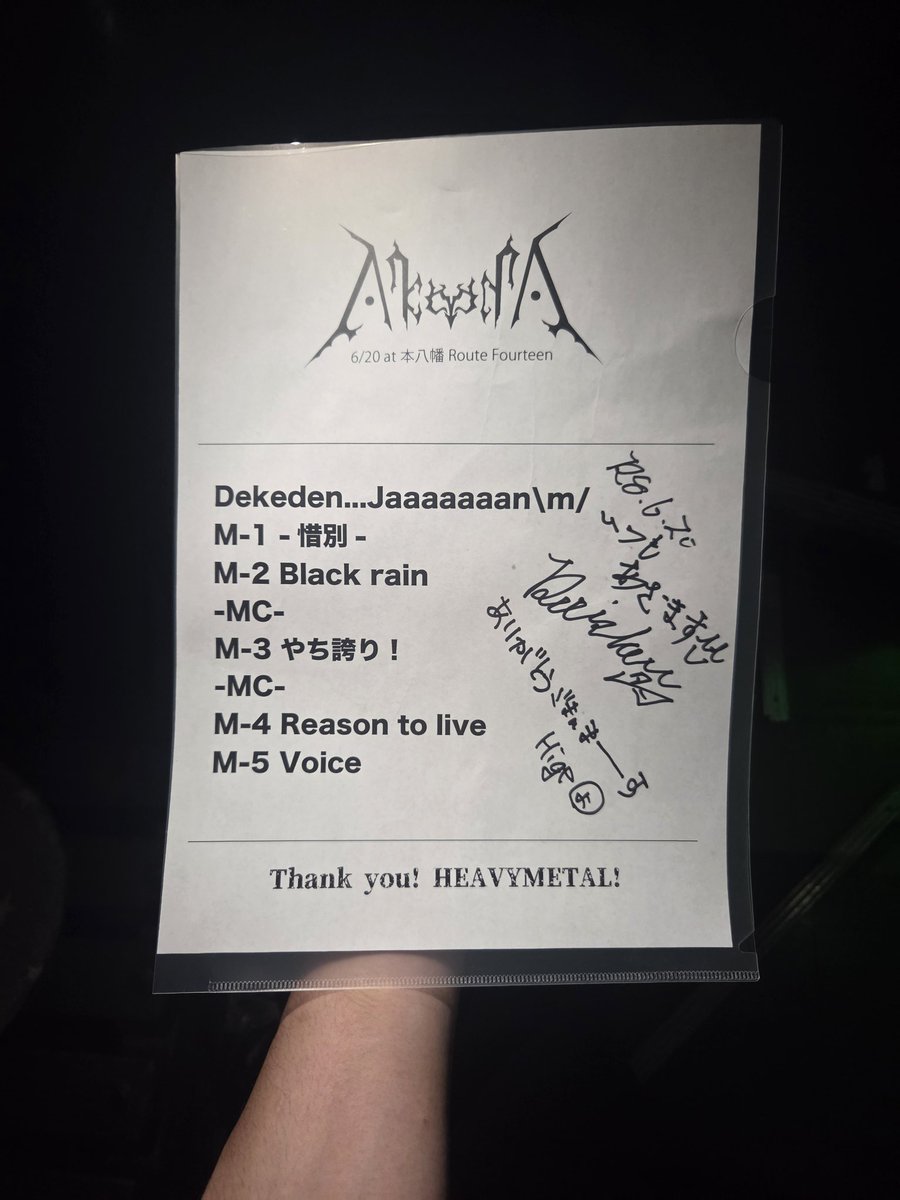 6/20 at 本八幡 Route Fourteen
Dekeden...Jaaaaaaan\m/
M-1 - 惜別 -
M-2 Black rain
-MC-
M-3 やち誇り！
-MC-
M-4 Reason to live
M-5 Voice
R8.6.20
いつも
ありがとうございまーす
Thank you! HEAVYMETAL!